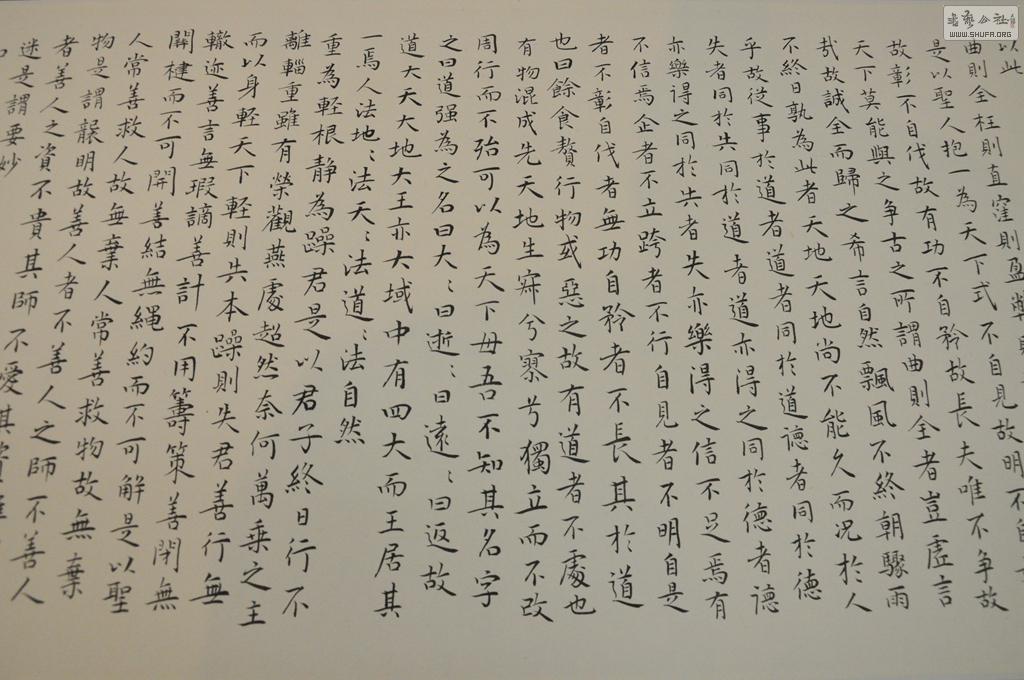 以此
曲則全枉則直窪則盈弊
是以聖人抱一為天下式不自見故明不自
故彰不自伐故有功不自矜故長夫唯不争故
天下莫能與之争古之所謂曲則全者豈虛言
哉故誠全而歸之希言自然飄風不終朝驟雨
不終日孰為此者天地天地尚不能久而況於人
乎故從事於道者道者同於道德者同於德
失者同於失同於道者道亦得之同於德者德
亦樂得之同於失者失亦樂得之信不足焉有
不信焉企者不立跨者不行自見者不明自是
者不彰自伐者無功自矜者不長其於道
也曰餘食贅行物或惡之故有道者不處也
有物混成先天地生寂兮寥兮獨立而不改
周行而不殆可以為天下母吾不知其名字
之曰道强為之名曰大:曰逝:曰遠:曰返故
道大天大地大王亦大域中有四大而王居其
一焉人法地:法天:法道:法自然
重為輕根静為躁君是以君子終日行不
離輜重雖有榮觀燕處超然奈何萬乘之主
而以身輕天下輕則失本躁則失君善行無
轍迹善言無瑕謫善計不用籌策善閉無
關楗而不可開善結無繩約而不可解是以聖
人常善救人故無棄人常善救物故無棄
物是謂襲明故善人者不善人之師不善人
者善人之資不貴其師不愛其資雖
迷是謂要妙
书艺公社
WWW.SHUFA.ORG